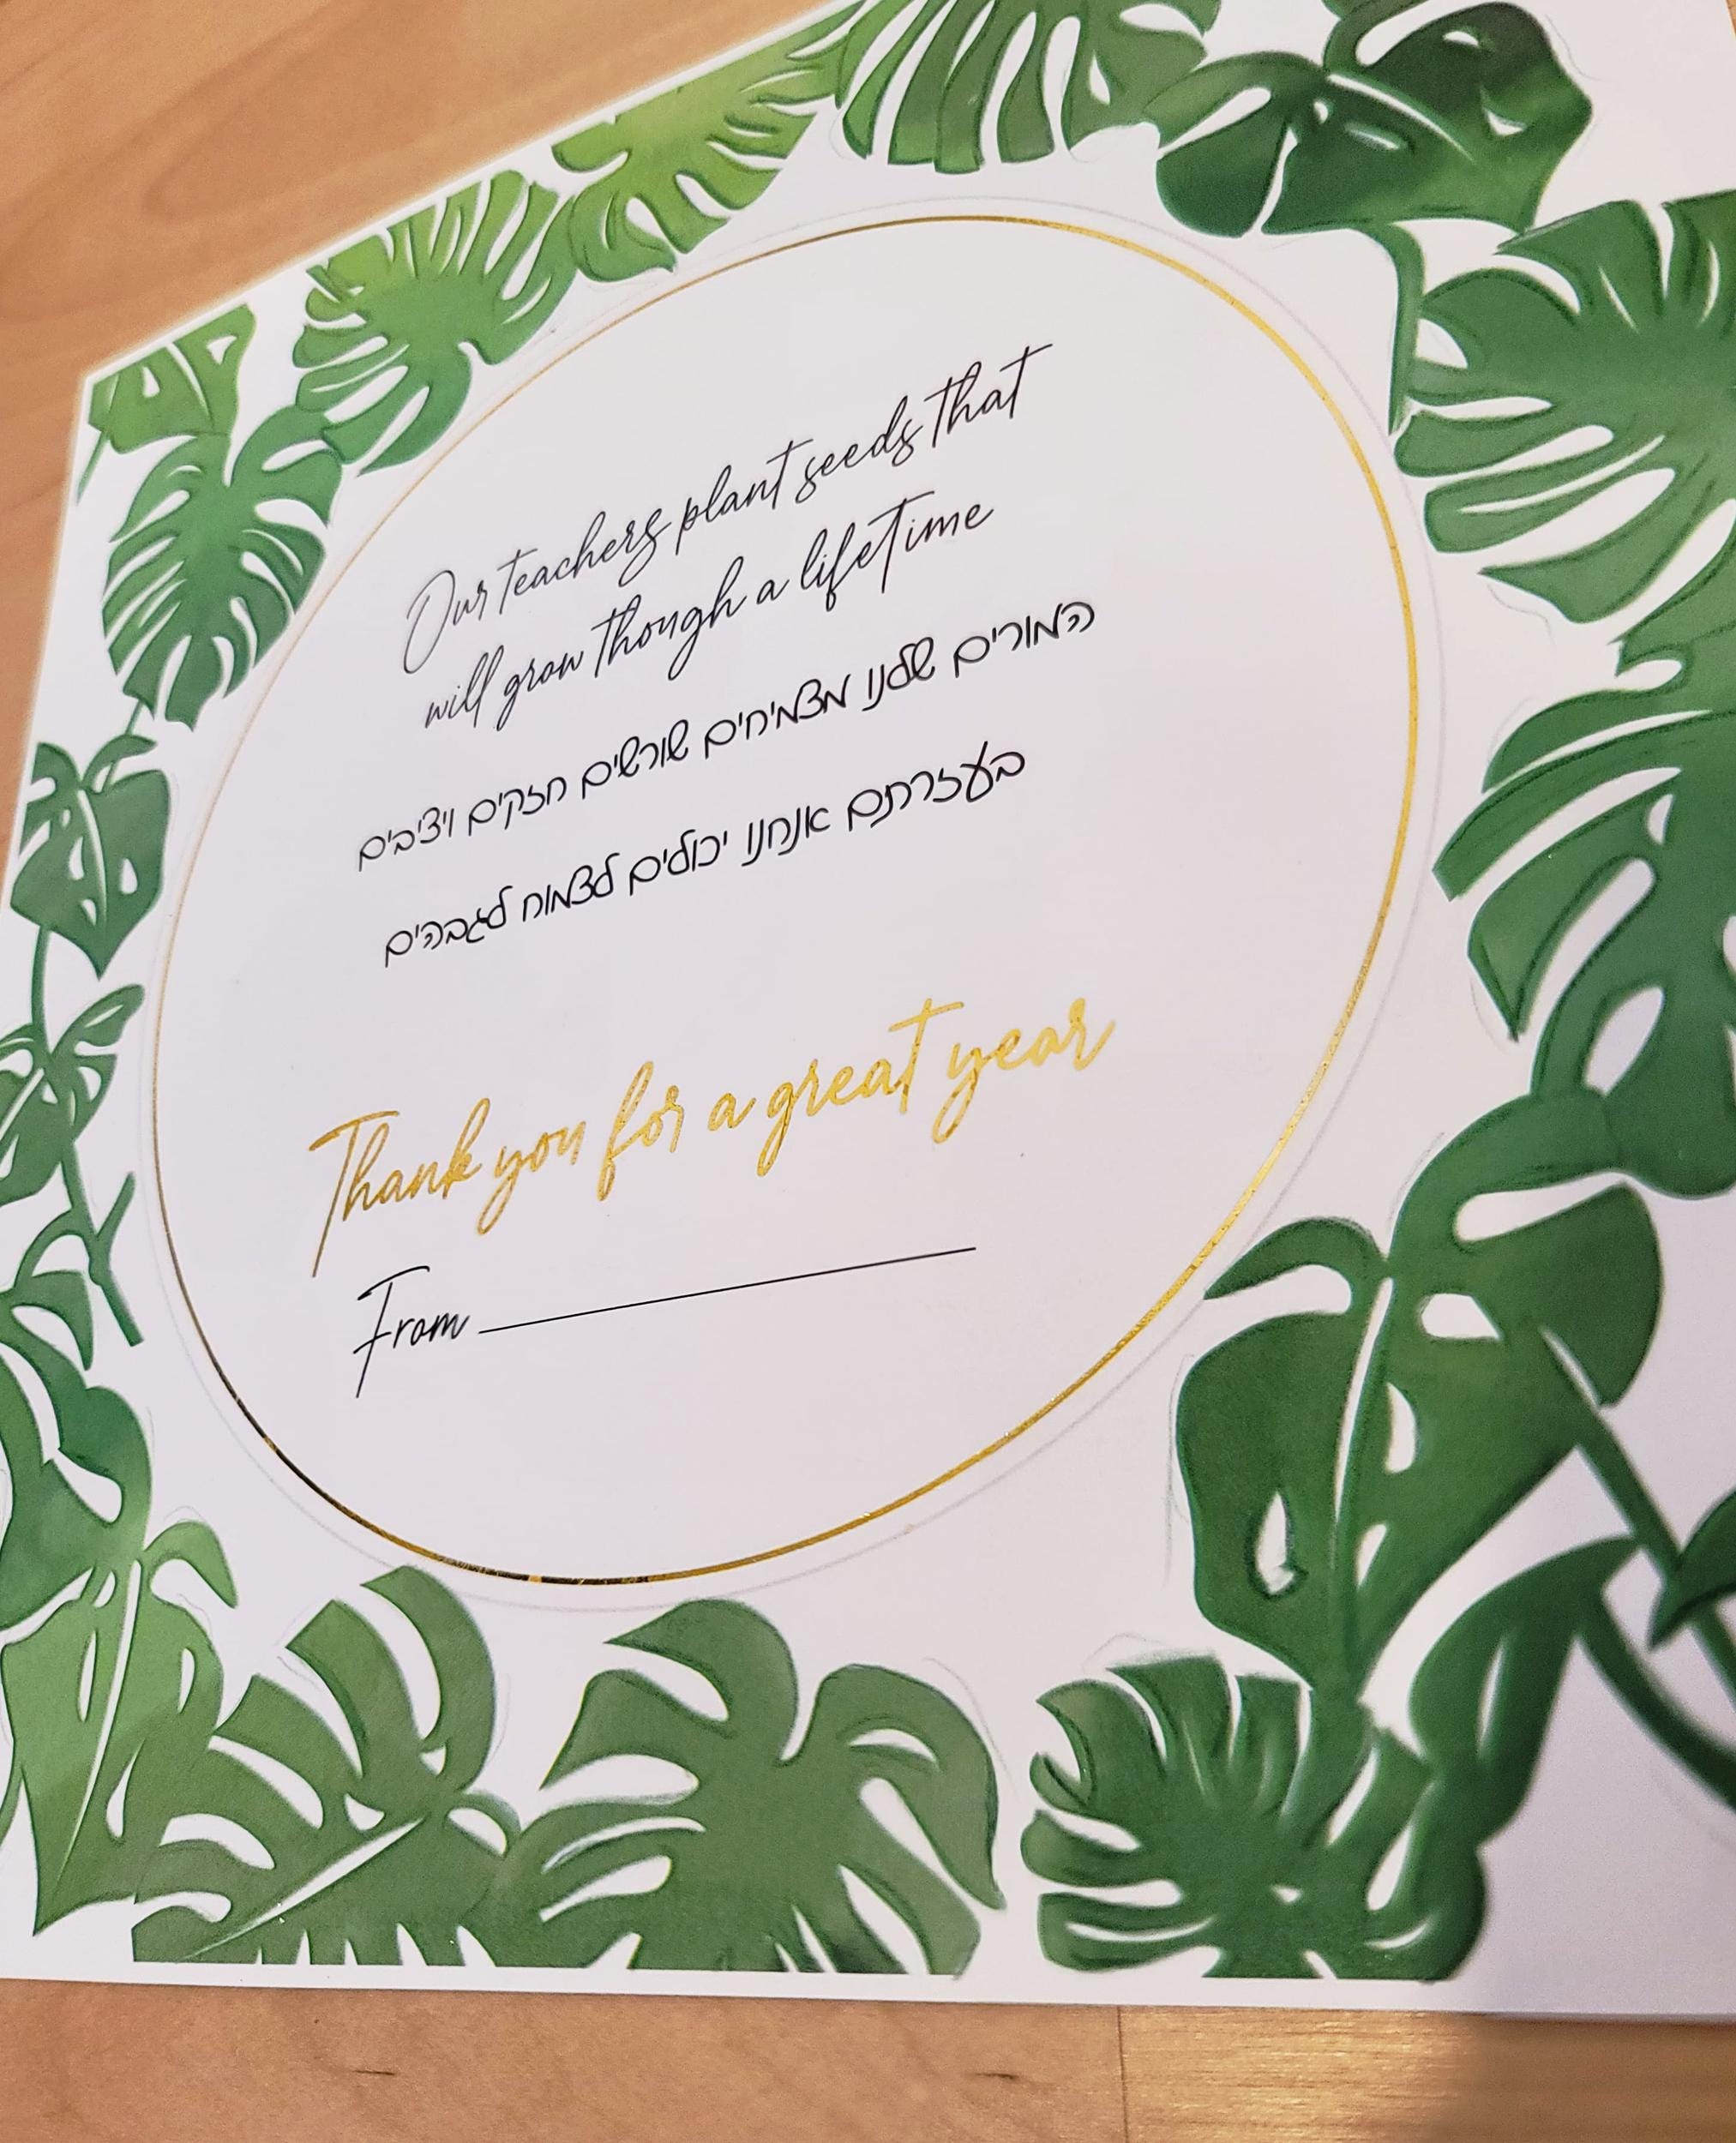 Our teachers plant seeds that
will grow though a lifetime
המורים שלנו מצמיחים שורשים חזקים ויציבים
בעזרתם אנחנו יכולים לצמוח לגבהים
Thank you for a great year
From